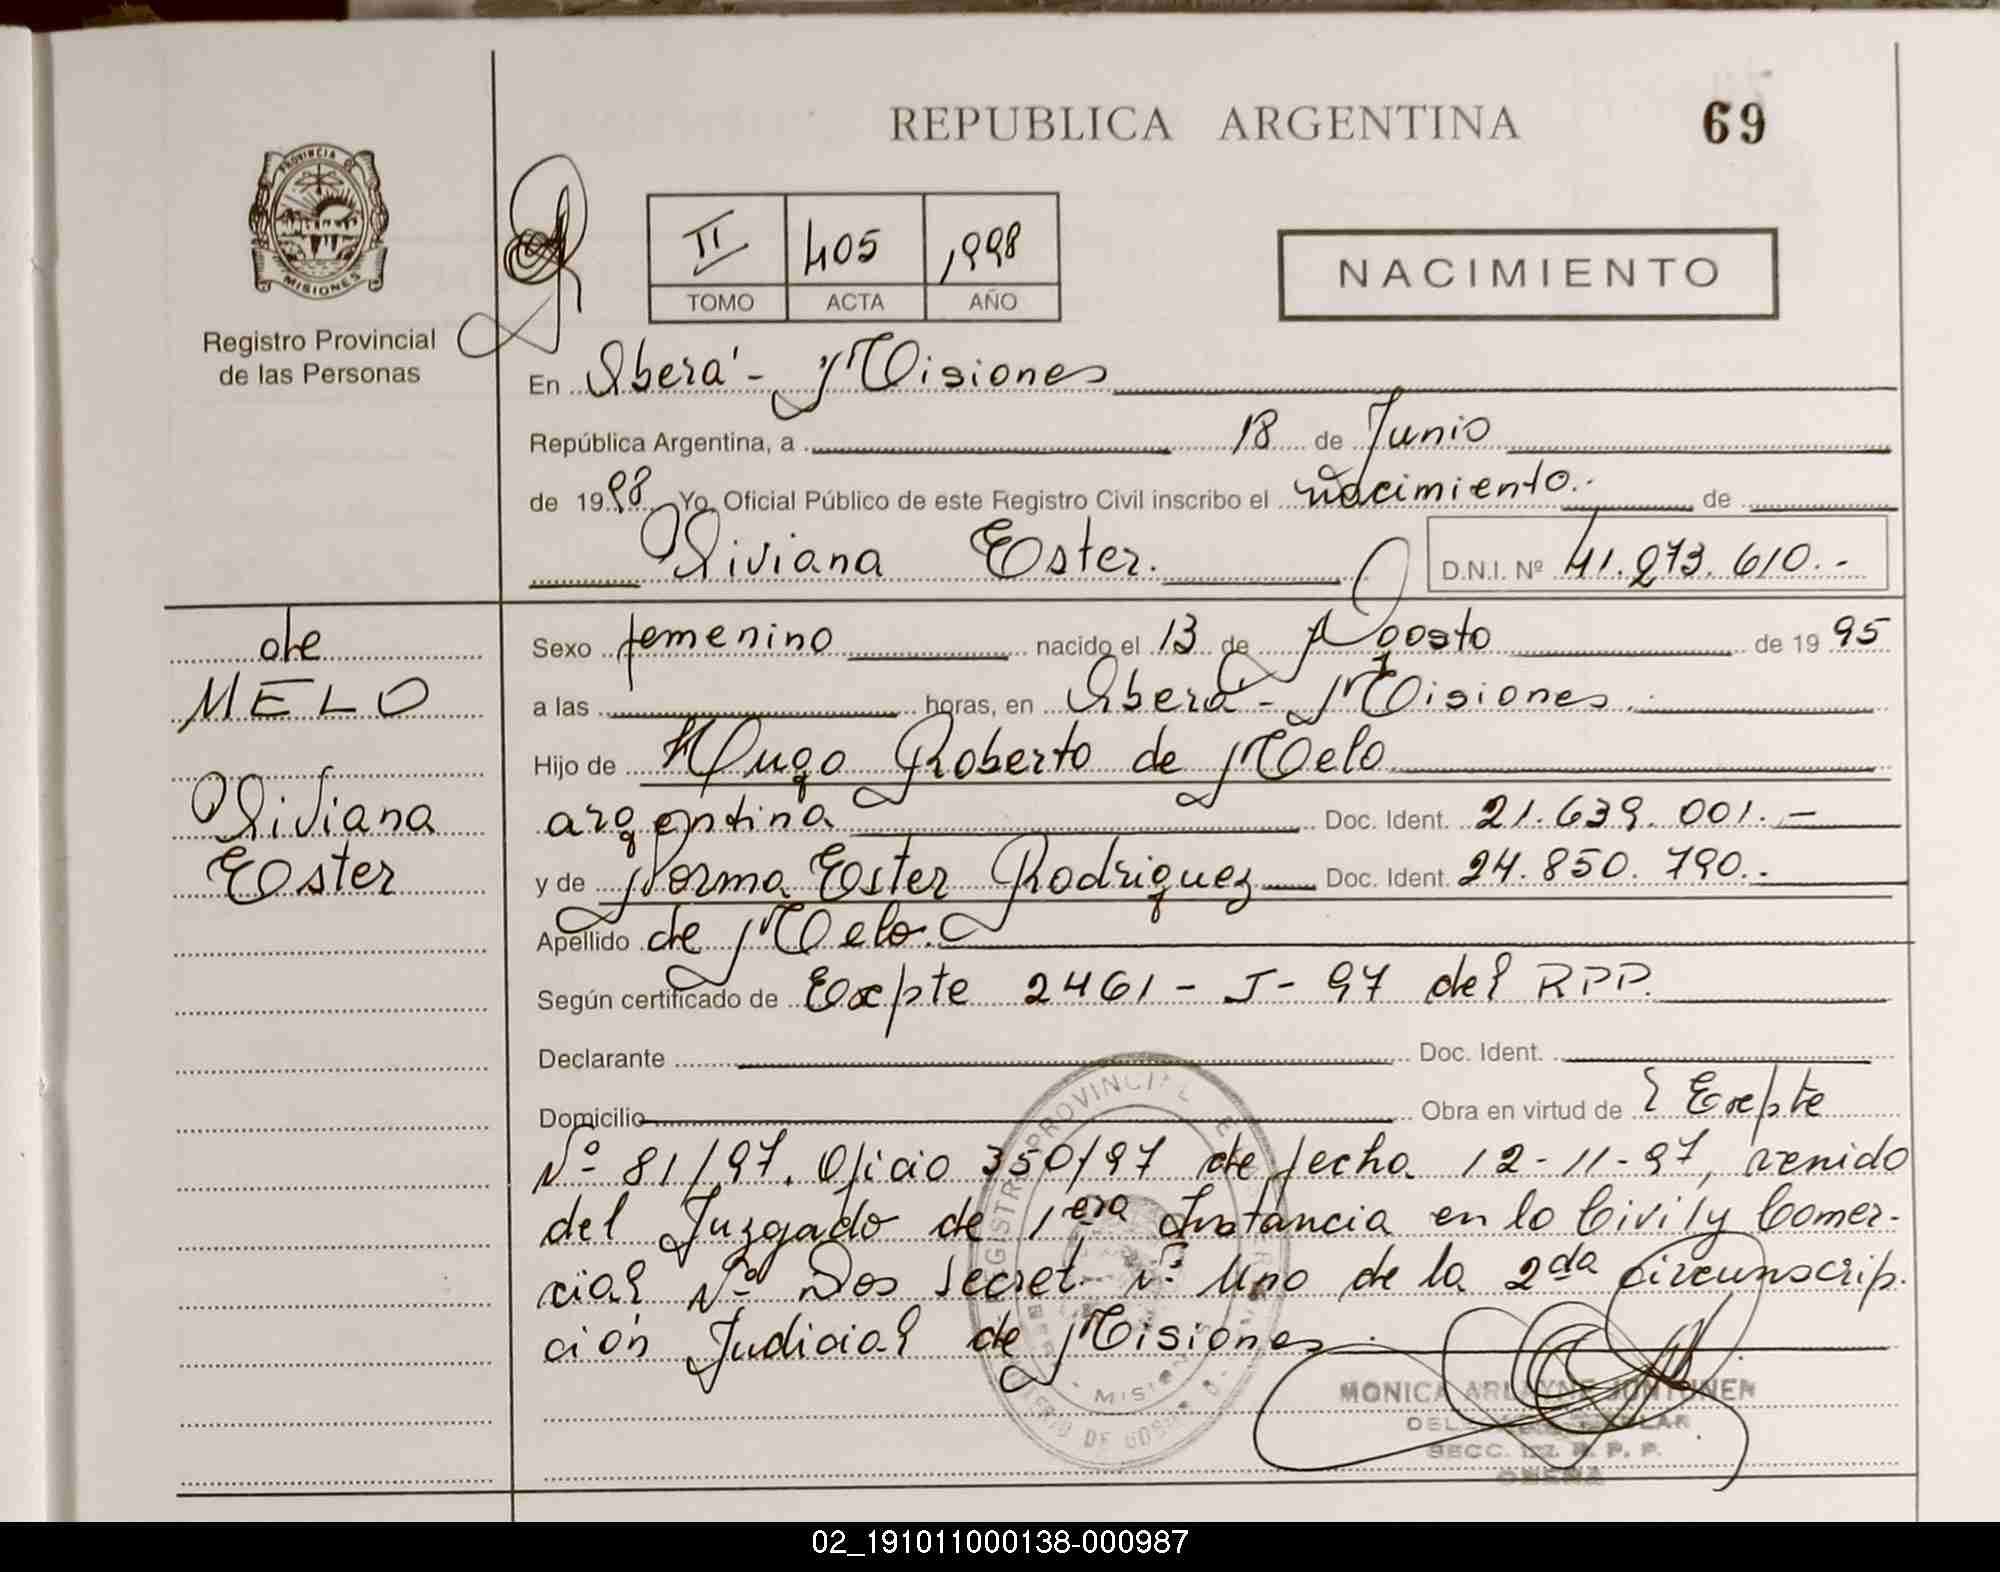 REPUBLICA ARGENTINA
69
PROVINCIA DE
MISIONES
Registro Provincial
de las Personas
II 405 1998
TOMO ACTA AÑO
NACIMIENTO
En Oberá - Misiones
República Argentina, a 18 de Junio
de 1998 Yo, Oficial Público de este Registro Civil inscribo el nacimiento.. de
Viviana Ester. D.N.I. Nº 41.273.610.-
de
MELO
Viviana
Ester
Sexo femenino nacido el 13 de Agosto de 1995
a las horas, en Oberá - Misiones.
Hijo de Hugo Roberto de Melo
argentina Doc. Ident. 21.639.001.-
y de Norma Ester Rodriguez Doc. Ident. 24.850.790..
Apellido de Melo.
Según certificado de Expte 2461 - J - 97 del RPP.
Declarante Doc. Ident.
Domicilio Obra en virtud de Expte
Nº 81/97. Oficio 350/97 de fecha 12-11-97, venido
del Juzgado de 1era Instancia en lo Civil y Comer-
cial Nº Dos Secret. Nº Uno de la 2da circunscrip.
ción Judicial de Misiones.
REGISTRO PROVINCIAL
MISIONES
MONICA ARLAYNE JUNTUNEN
SECC. R. P. P.
02_191011000138-000987